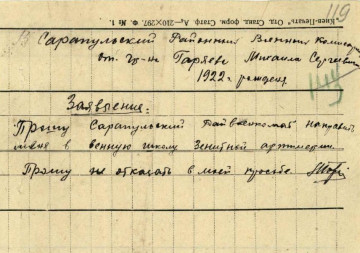 Киев-Печать" Отд. Станд. форм. Статф А₄—210×297. Ф. № 1.
119
В Сарапульский Районный Военный Комиссар
от гр-на Гаряева Михаила Сергеевич
1922 г. рождения
Заявления.
Прошу Сарапульский Райвоенкомат направить
меня в военную школу Зенитной артилерии.
Прошу не отказать в моей прозьбе.